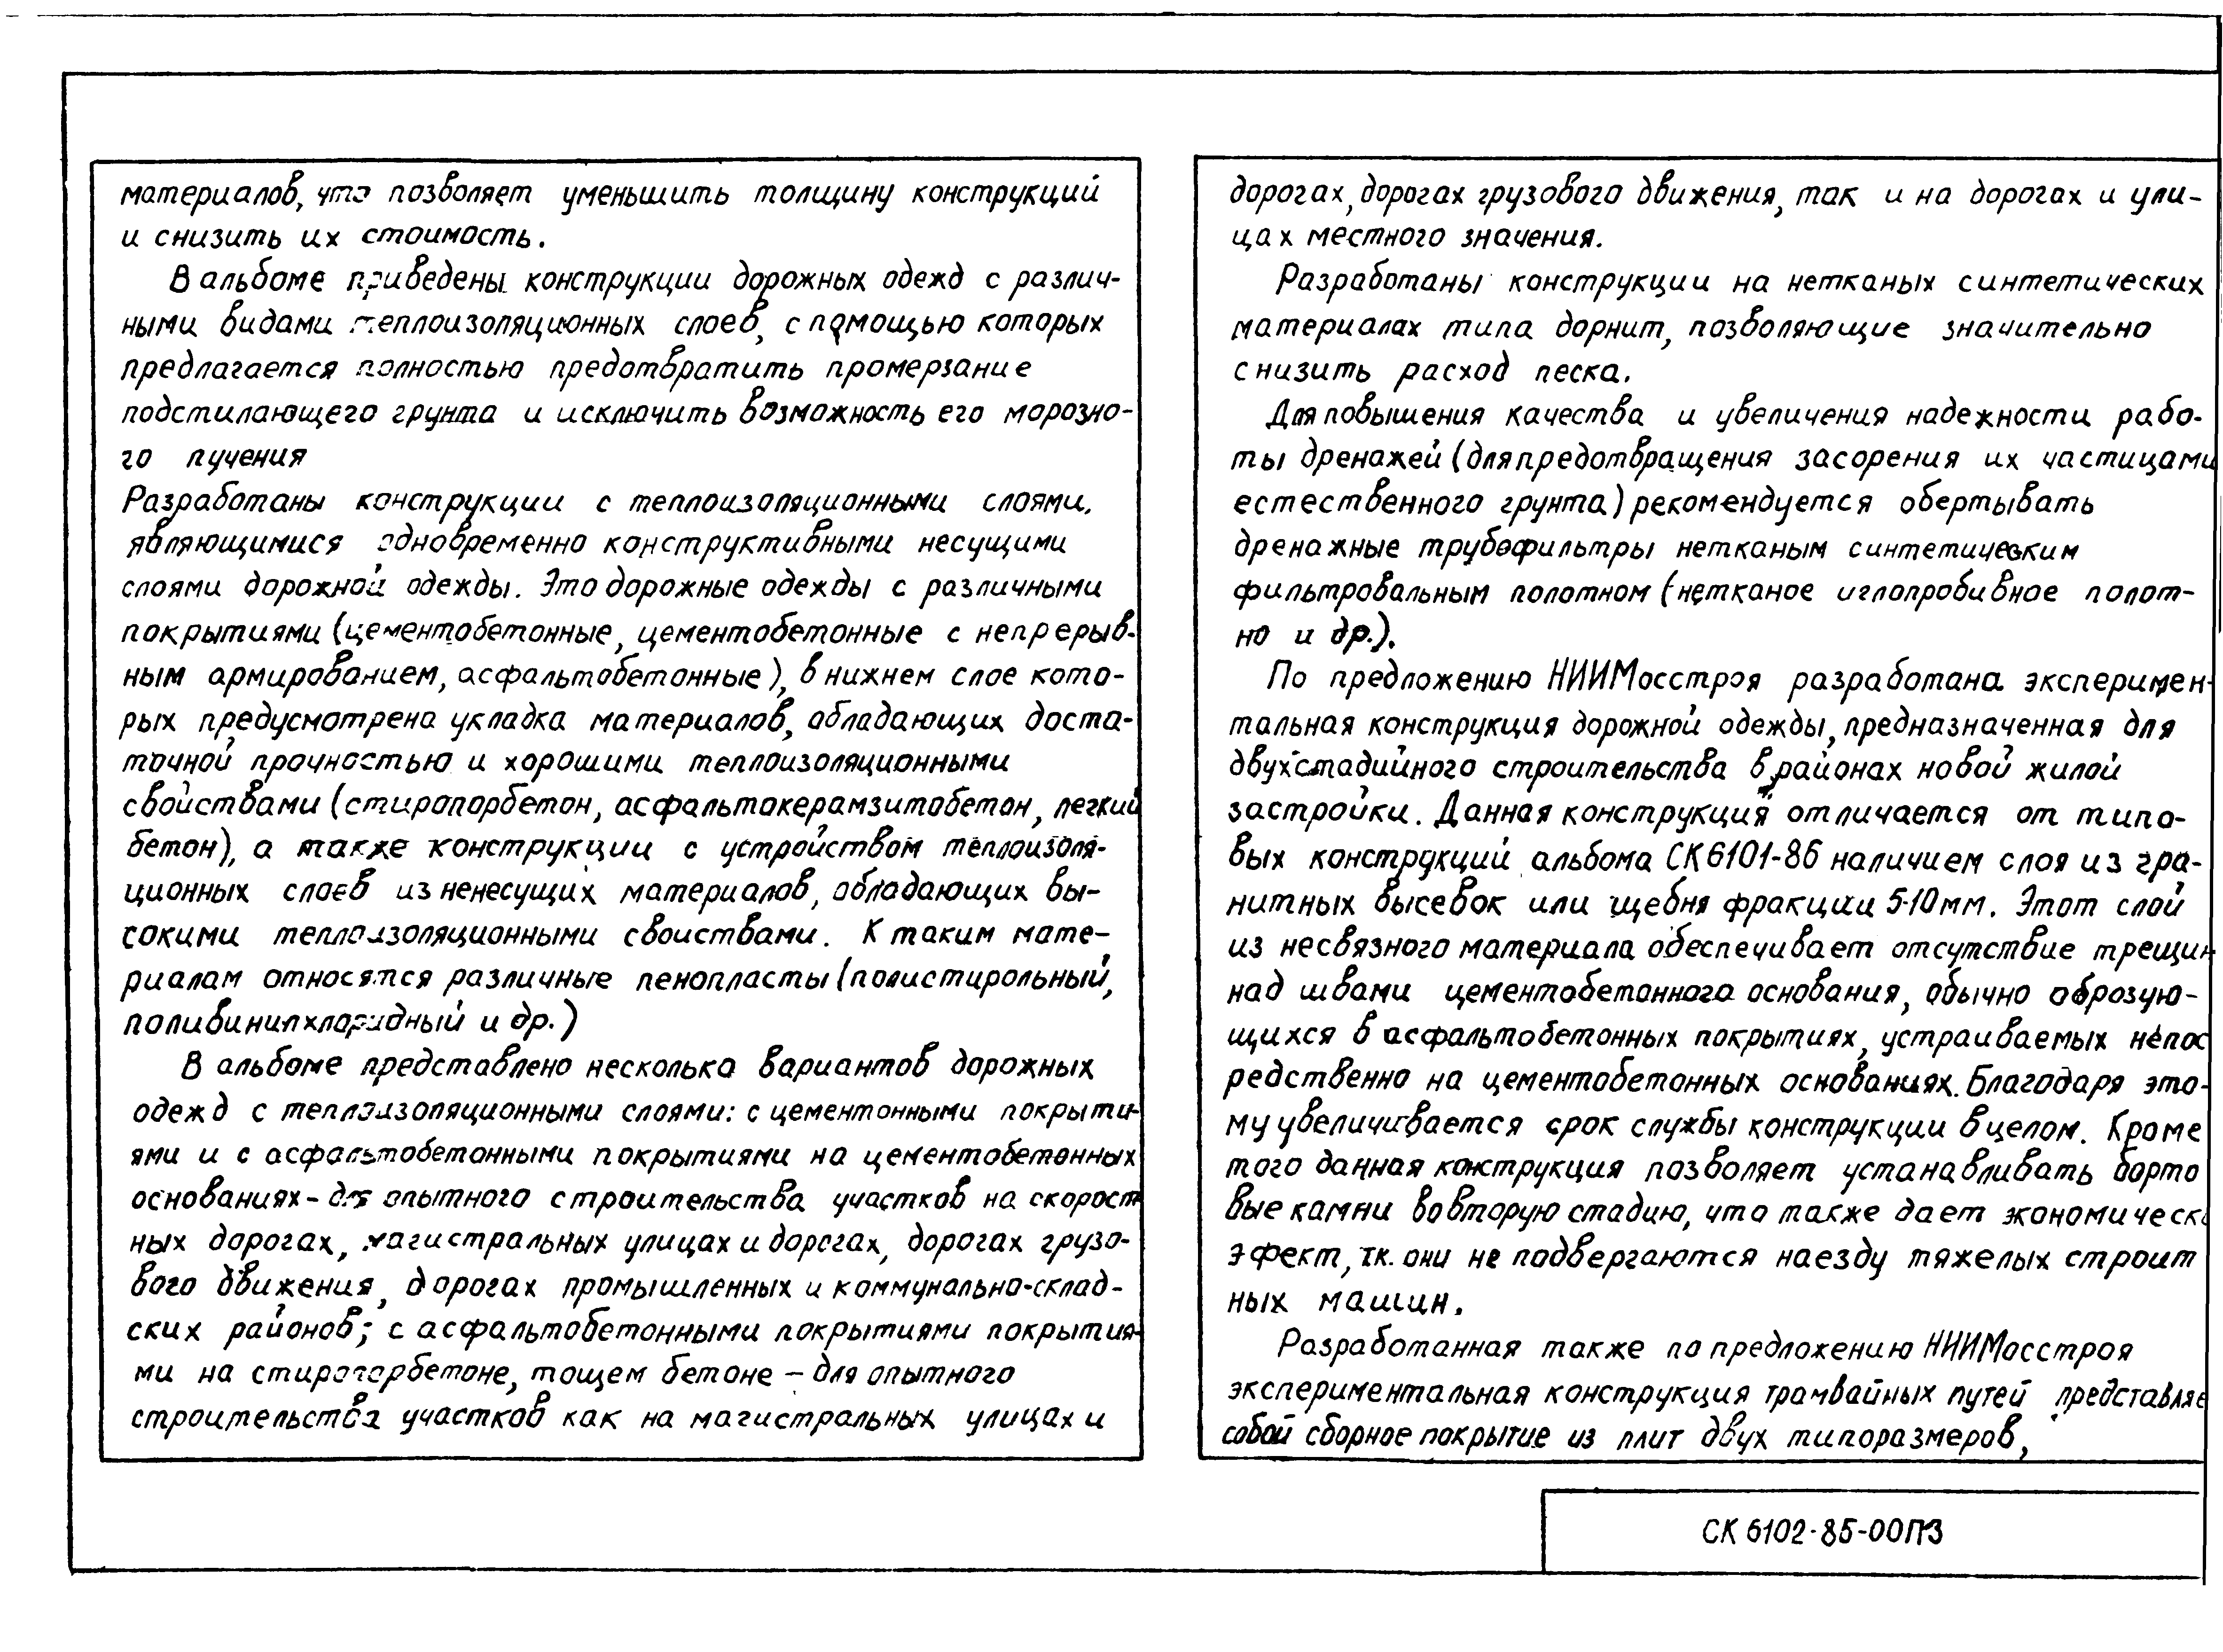 материалов, что позволяет уменьшить толщину конструкций
и снизить их стоимость.
В альбоме приведены конструкции дорожных одежд с различ-
ными видами теплоизоляционных слоев, с помощью которых
предлагается полностью предотвратить промерзание
подстилающего грунта и исключить возможность его морозно-
го пучения
Разработаны конструкции с теплоизоляционными слоями,
являющимися одновременно конструктивными несущими
слоями дорожной одежды. Это дорожные одежды с различными
покрытиями (цементобетонные, цементобетонные с непрерыв-
ным армированием, асфальтобетонные), в нижнем слое кото-
рых предусмотрена укладка материалов, обладающих доста-
точной прочностью и хорошими теплоизоляционными
свойствами (стиропорбетон, асфальтокерамзитобетон, легкий
бетон), а также конструкции с устройством теплоизоля-
ционных слоев из ненесущих материалов, обладающих вы-
сокими теплоизоляционными своиствами. К таким мате-
риалам относятся различные пенопласты (полистирольный,
поливинилхлоридный и др.)
В альбоме представлено несколько вариантов дорожных
одежд с теплоизоляционными слоями: с цементонными покрыти-
ями и с асфальтобетонными покрытиями на цементобетонных
основаниях - для опытного строительства участков на скорост
ных дорогах, магистральных улицах и дорогах, дорогах грузо-
вого движения, дорогах промышленных и коммунально-склад-
ских районов; с асфальтобетонными покрытиями покрытия-
ми на стиропорбетоне, тощем бетоне - для опытного
строительства участков как на магистральных улицах и
дорогах, дорогах грузового движения, так и на дорогах и ули-
цах местного значения.
Разработаны конструкции на нетканых синтетических
материалах типа дорнит, позволяющие значительно
снизить расход песка.
Для повышения качества и увеличения надежности рабо-
ты дренажей (для предотвращения засорения их частицами
естественного грунта) рекомендуется обертывать
дренажные трубофильтры нетканым синтетическим
фильтровальным полотном (нетканое иглопробивное полот-
но и др.).
По предложению НИИМосстроя разработана эксперимен-
тальная конструкция дорожной одежды, предназначенная для
двухстадийного строительства в районах новой жилой
застройки. Данная конструкция отличается от типо-
вых конструкций альбома СК 6101-86 наличием слоя из гра-
нитных высевок или щебня фракции 5-10 мм. Этот слой
из несвязного материала обеспечивает отсутствие трещин
над швами цементобетонного основания, обычно образую-
щихся в асфальтобетонных покрытиях, устраиваемых непос
редственно на цементобетонных основаниях. Благодаря это-
му увеличивается срок службы конструкции в целом. Кроме
того данная конструкция позволяет устанавливать борто
вые камни во вторую стадию, что также дает экономическ
эфект, т.к. они не подвергаются наезду тяжелых строит
ных машин.
Разработанная также по предложению НИИМосстроя
экспериментальная конструкция трамвайных путей представляе
собой сборное покрытие из плит двух типоразмеров,
СК 6102-85-00ПЗ